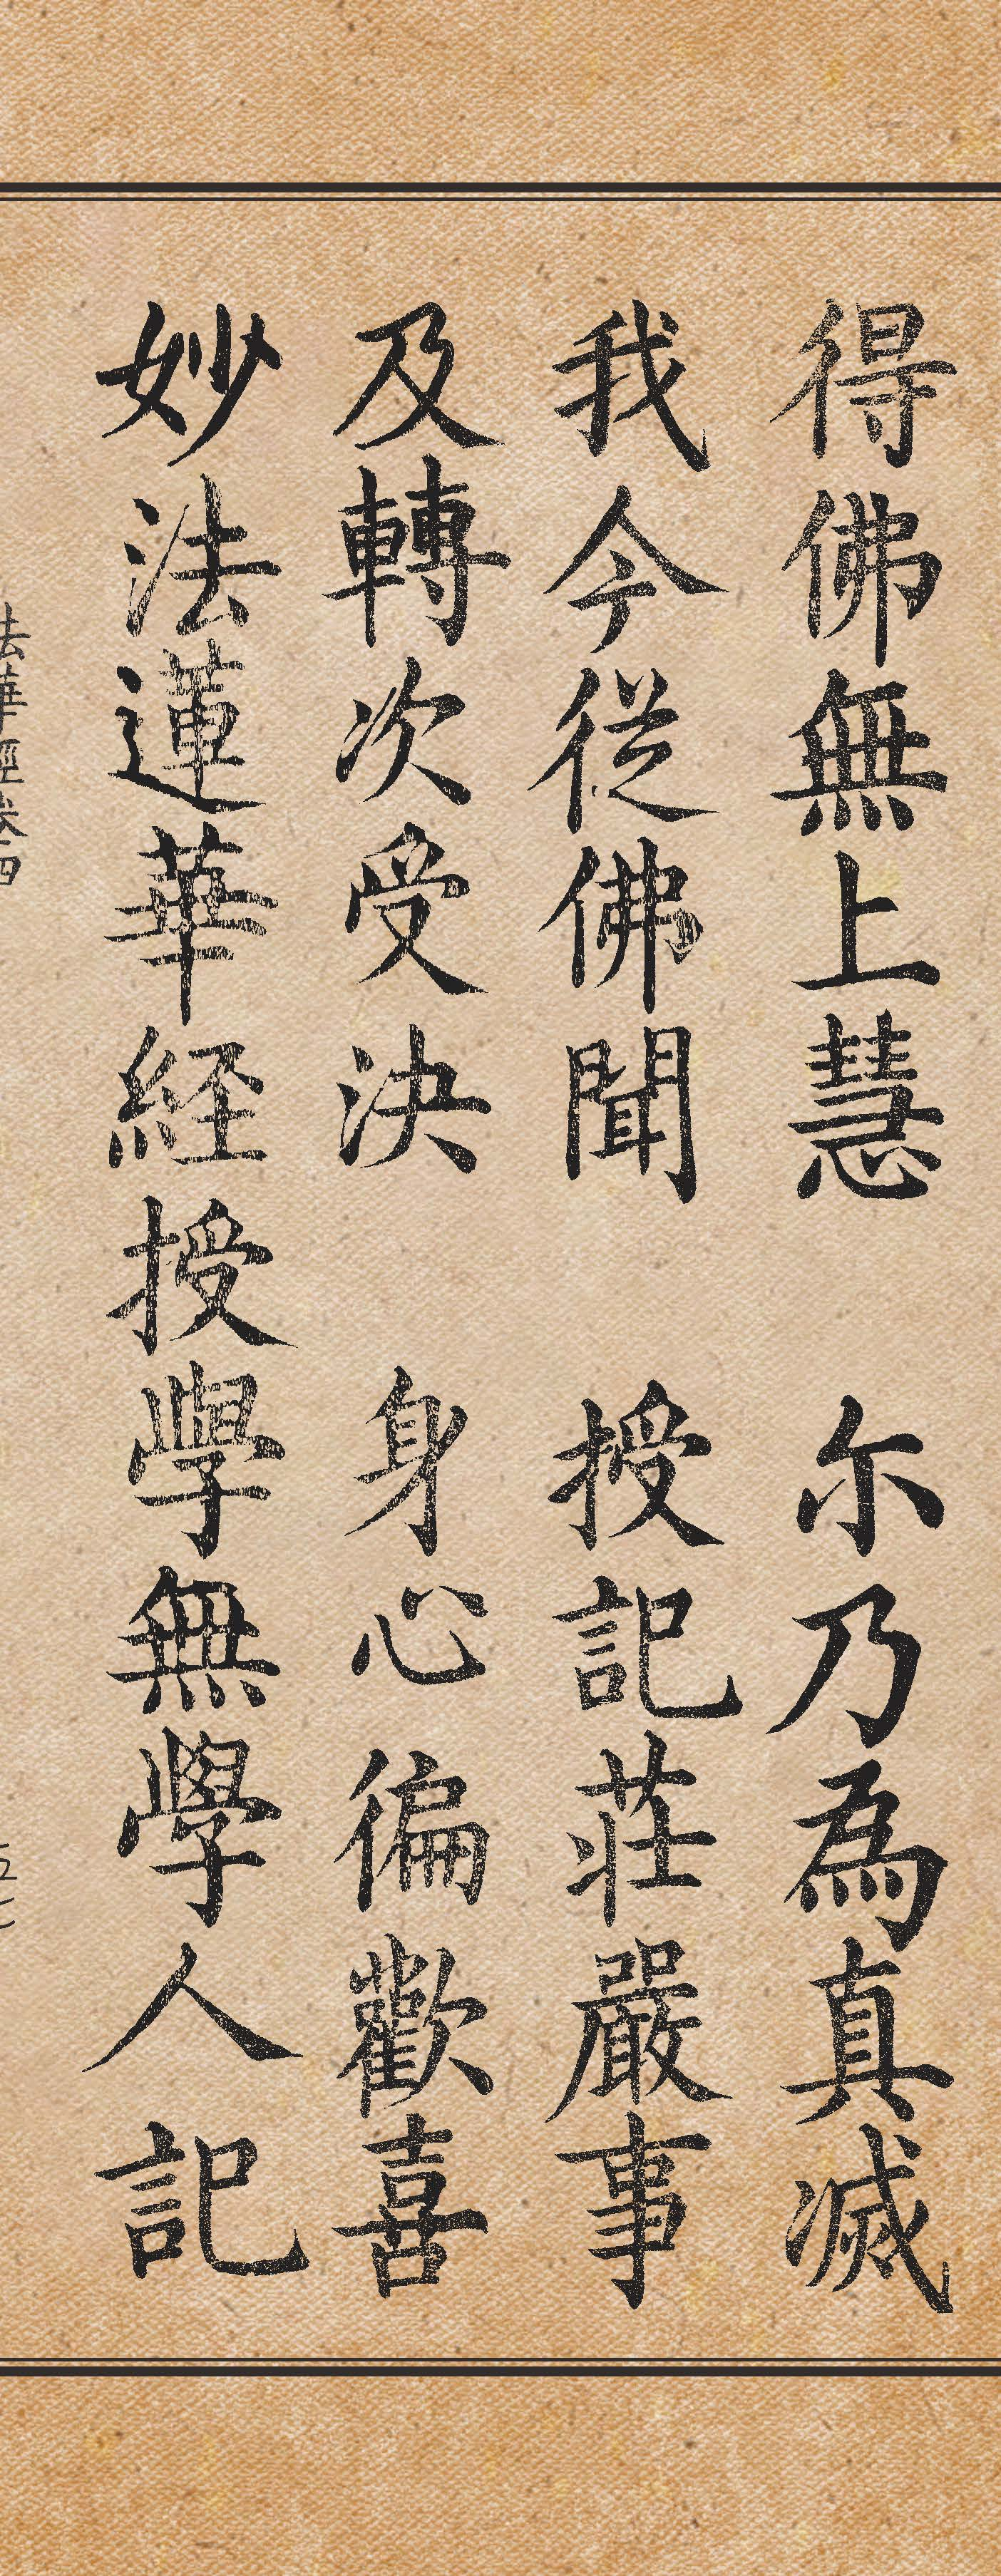 得佛無上慧　尓乃為真滅
我今従佛聞　授記荘嚴事
及轉次受決　身心徧歡喜
妙法蓮華経授學無學人記
法華經卷四　五七